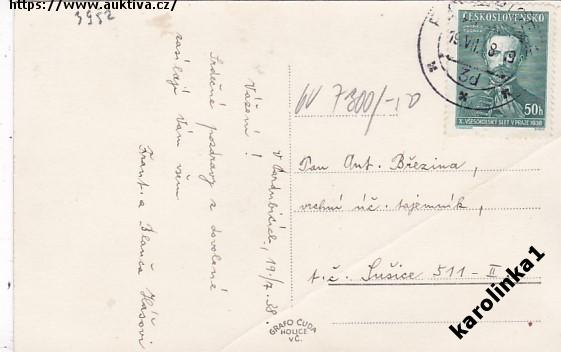 https://www.auktiva.cz/
3952
V Pardubicích, 19./7. 38.
Vážení!
Srdečné pozdravy z dovolené
zasílají Vám všem
Frant. a Blanča
ČESKOSLOVENSKO
50h
X. VŠESOKOLSKÝ SLET V PRAZE 1938
19.VII.38-19
Pan Ant. Březina,
vrchní úč. tajemník,
t. č. Sušice 511-II
GRAFO ČUDA
HOLICE
V Č.
karolinka1